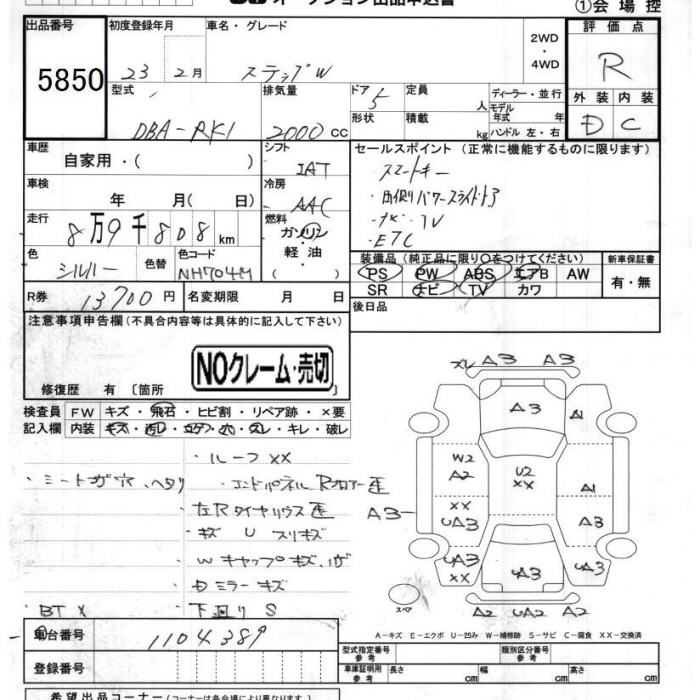 ①会場控
出品番号
5850
初度登録年月
23 2月
車名・グレード
ステップW
2WD
・
4WD
評価点
R
外装 内装
D C
型式
DBA-RK1
排気量
2000 cc
ドア 5
形状
定員 人
積載 kg
ディーラー・並行
モデル年式 年式
ハンドル 左・右
車歴
自家用・( )
シフト
IAT
セールスポイント (正常に機能するものに限ります)
・スマートキー
・両側パワースライドドア
・ナビ・TV
・ETC
車検
年 月( 日)
冷房
AAC
走行
8万9千808km
燃料
ガソリン
軽油
( )
色
シルバー
色替
色コード
NH704M
装備品 (純正品に限り○をつけてください)
PS PW ABS エアB AW
SR ナビ TV カワ
新車保証書
有・無
R券
13700円
名変期限 月 日
後日品
注意事項申告欄 (不具合内容等は具体的に記入して下さい)
NOクレーム・売切
修復歴 有 〔箇所 〕
検査員記入欄
FW キズ・飛石・ヒビ割・リペア跡・×要
内装 キズ・汚レ・コゲ・穴・スレ・キレ・破レ
・ルーフXX
・シートコゲ穴、ヘタリ
・エンドパネル Rフロアー歪
左Rタイヤハウス歪
キズ U スリキズ
Wキャップキズ、
ミラーキズ
・BT X
下廻りS
ズレ A3 A3
A3
A1
W2
A2
U2
XX
A1
XX
UA3
A3
A3
UA3
XX
A3
UA3
A2 A2 UA2
スペア
A-キズ E-エクボ U-凹み W-補修跡 S-サビ C-腐食 XX-交換済
車台番号
1104389
登録番号
型式指定番号
参考
類別区分番号
参考
車庫証明用
参考
長さ cm
幅 cm
高さ cm
希望出品コーナー